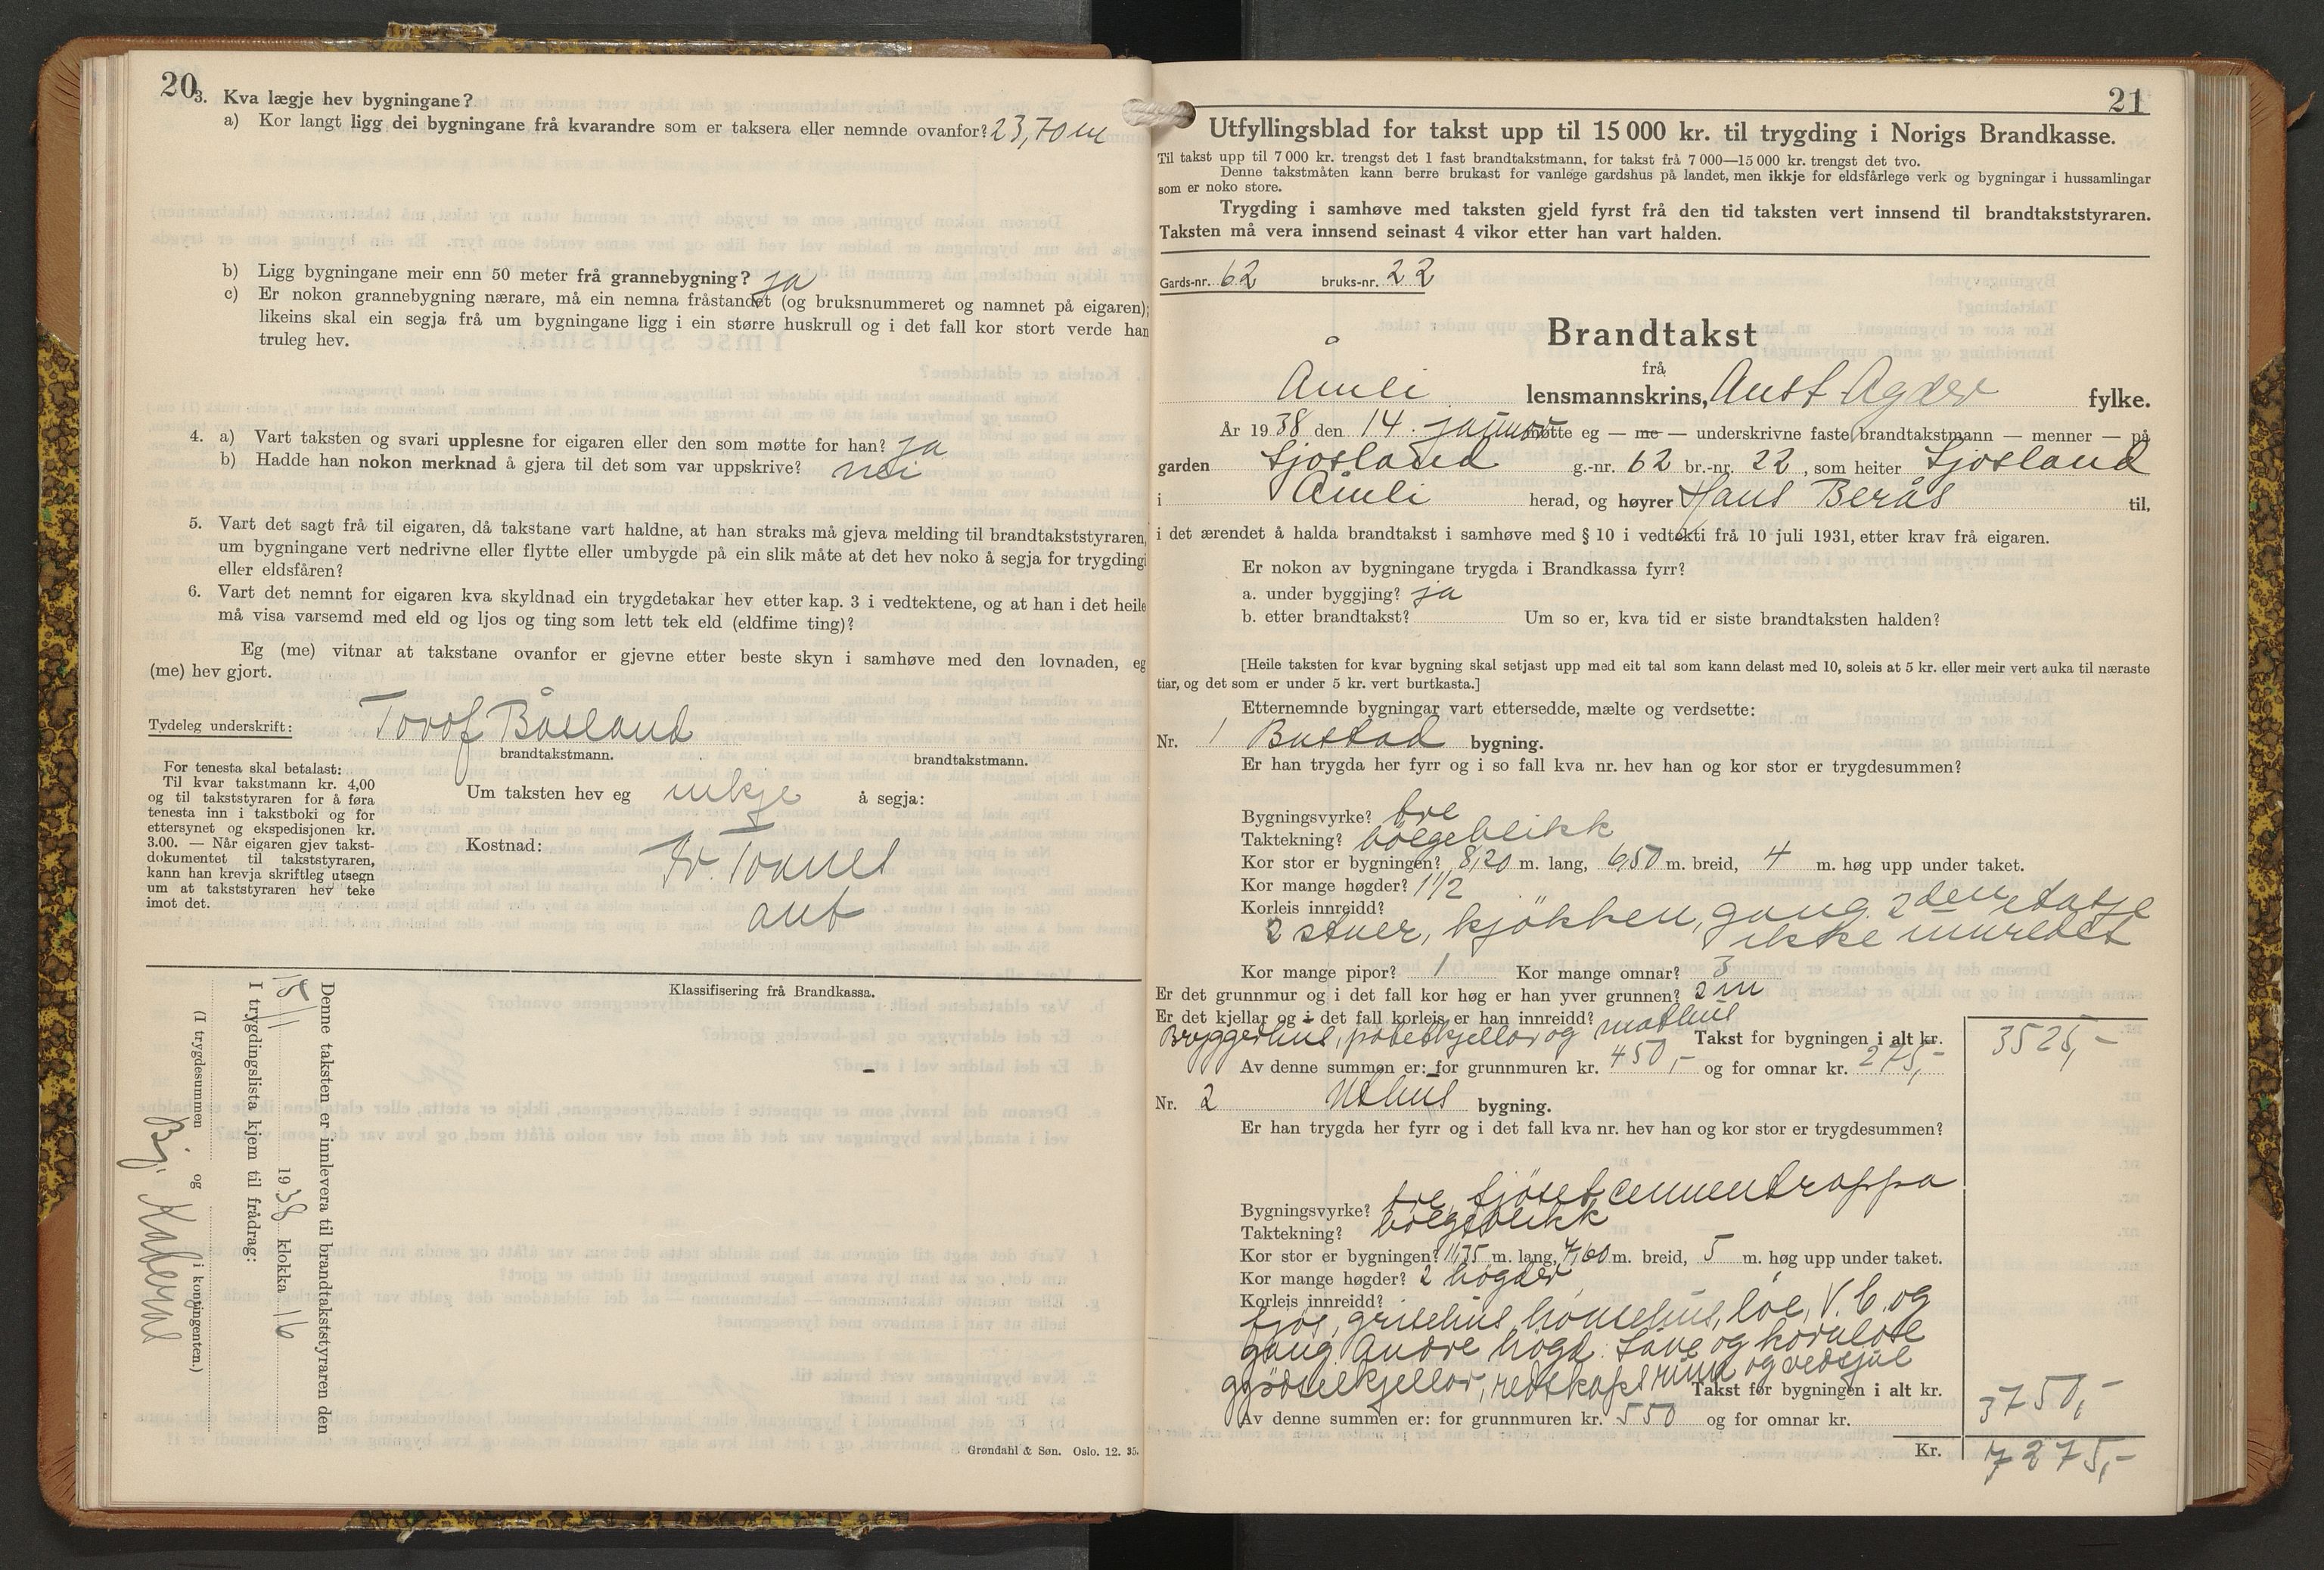 20
3. Kva lægje hev bygningane?
a) Kor langt ligg dei bygningane frå kvarandre som er taksera eller nemnde ovanfor? 23,70 m
b) Ligg bygningane meir enn 50 meter frå grannebygning? ja
c) Er nokon grannebygning nærare, må ein nemna fråstandet (og bruksnummeret og namnet på eigaren);
likeins skal ein segja frå um bygningane ligg i ein større huskrull og i det fall kor stort verde han
truleg hev.
4. a) Vart taksten og svari upplesne for eigaren eller den som møtte for han? ja
b) Hadde han nokon merknad å gjera til det som var uppskrive? nei
5. Vart det sagt frå til eigaren, då takstane vart haldne, at han straks må gjeva melding til brandtakststyraren,
um bygningane vert nedrivne eller flytte eller umbygde på ein slik måte at det hev noko å segja for trygdingi
eller eldsfåren?
6. Vart det nemnt for eigaren kva skyldnad ein trygdetakar hev etter kap. 3 i vedtektene, og at han i det heile
må visa varsemd med eld og ljos og ting som lett tek eld (eldfime ting)?
Eg (me) vitnar at takstane ovanfor er gjevne etter beste skyn i samhøve med den lovnaden, eg
(me) hev gjort.
Tydeleg underskrift: Torof Båsland
brandtakstmann. brandtakstmann.
For tenesta skal betalast:
Til kvar takstmann kr. 4,00
og til takststyraren for å føra
tenesta inn i takstboki og for
ettersynet og ekspedisjonen kr.
3.00. — Når eigaren gjev takst-
dokumentet til takststyraren,
kann han krevja skriftleg utsegn
um at takststyraren hev teke
imot det.
Um taksten hev eg inkje å segja:
Kostnad:
Tr. Tovnes
aut
Klassifisering frå Brandkassa.
Denne taksten er innlevera til brandtakststyraren den
15/1 1938 klokka 16
I trygdingslista kjem til frådrag:
(I trygdesummen og i kontingenten.)
Grøndahl & Søn. Oslo. 12. 35.
21
Utfyllingsblad for takst upp til 15 000 kr. til trygding i Norigs Brandkasse.
Til takst upp til 7 000 kr. trengst det 1 fast brandtakstmann, for takst frå 7 000—15 000 kr. trengst det tvo.
Denne takstmåten kann berre brukast for vanlege gardshus på landet, men ikkje for eldsfårlege verk og bygningar i hussamlingar
som er noko store.
Trygding i samhøve med taksten gjeld fyrst frå den tid taksten vert innsend til brandtakststyraren.
Taksten må vera innsend seinast 4 vikor etter han vart halden.
Gards-nr. 62 bruks-nr. 22
Brandtakst
frå
Åmli lensmannskrins, Aust Agder fylke.
År 1938 den 14. januar møtte eg — me — underskrivne faste brandtakstmann — menner — på
garden Sjøsland g.-nr. 62 br.-nr. 22, som heiter Sjøsland
i Åmli herad, og høyrer Hans Berås til,
i det ærendet å halda brandtakst i samhøve med § 10 i vedtekti frå 10 juli 1931, etter krav frå eigaren.
Er nokon av bygningane trygda i Brandkassa fyrr?
a. under byggjing? ja
b. etter brandtakst? Um so er, kva tid er siste brandtaksten halden?
[Heile taksten for kvar bygning skal setjast upp med eit tal som kann delast med 10, soleis at 5 kr. eller meir vert auka til næraste
tiar, og det som er under 5 kr. vert burtkasta.]
Etternemnde bygningar vart ettersedde, mælte og verdsette:
Nr. 1 Bustad bygning.
Er han trygda her fyrr og i so fall kva nr. hev han og kor stor er trygdesummen?
Bygningsvyrke? tre
Taktekning? bölgeblikk
Kor stor er bygningen? 8,20 m. lang, 6,50 m. breid, 4 m. høg upp under taket.
Kor mange høgder? 1 1/2
Korleis innreidd?
2 stuer, kjökken, gang. 2den etasje
ikke innredet
Kor mange pipor? 1 Kor mange omnar? 3
Er det grunnmur og i det fall kor høg er han yver grunnen? 2 m
Er det kjellar og i det fall korleis er han innreidd?
Bryggerhus, potetkjellar og mathus Takst for bygningen i alt kr. 3525,-
Av denne summen er: for grunnmuren kr. 450,- og for omnar kr. 275,-
Nr. 2 Uthus bygning.
Er han trygda her fyrr og i det fall kva nr. hev han og kor stor er trygdesummen?
Bygningsvyrke? tre, fjöset cementrappa
Taktekning? bölgeblikk
Kor stor er bygningen? 11,75 m. lang, 7,60 m. breid, 5 m. høg upp under taket.
Kor mange høgder? 2 högder
Korleis innreidd?
fjös, grisehus, hönsehus, löe, V. C. og
gang. Andre högd: Låve og kornlöe
gjödselkjellar, redskapsrum og vedsjul
Takst for bygningen i alt kr. 3750,-
Av denne summen er: for grunnmuren kr. 550 og for omnar kr.
Kr. 7275,-